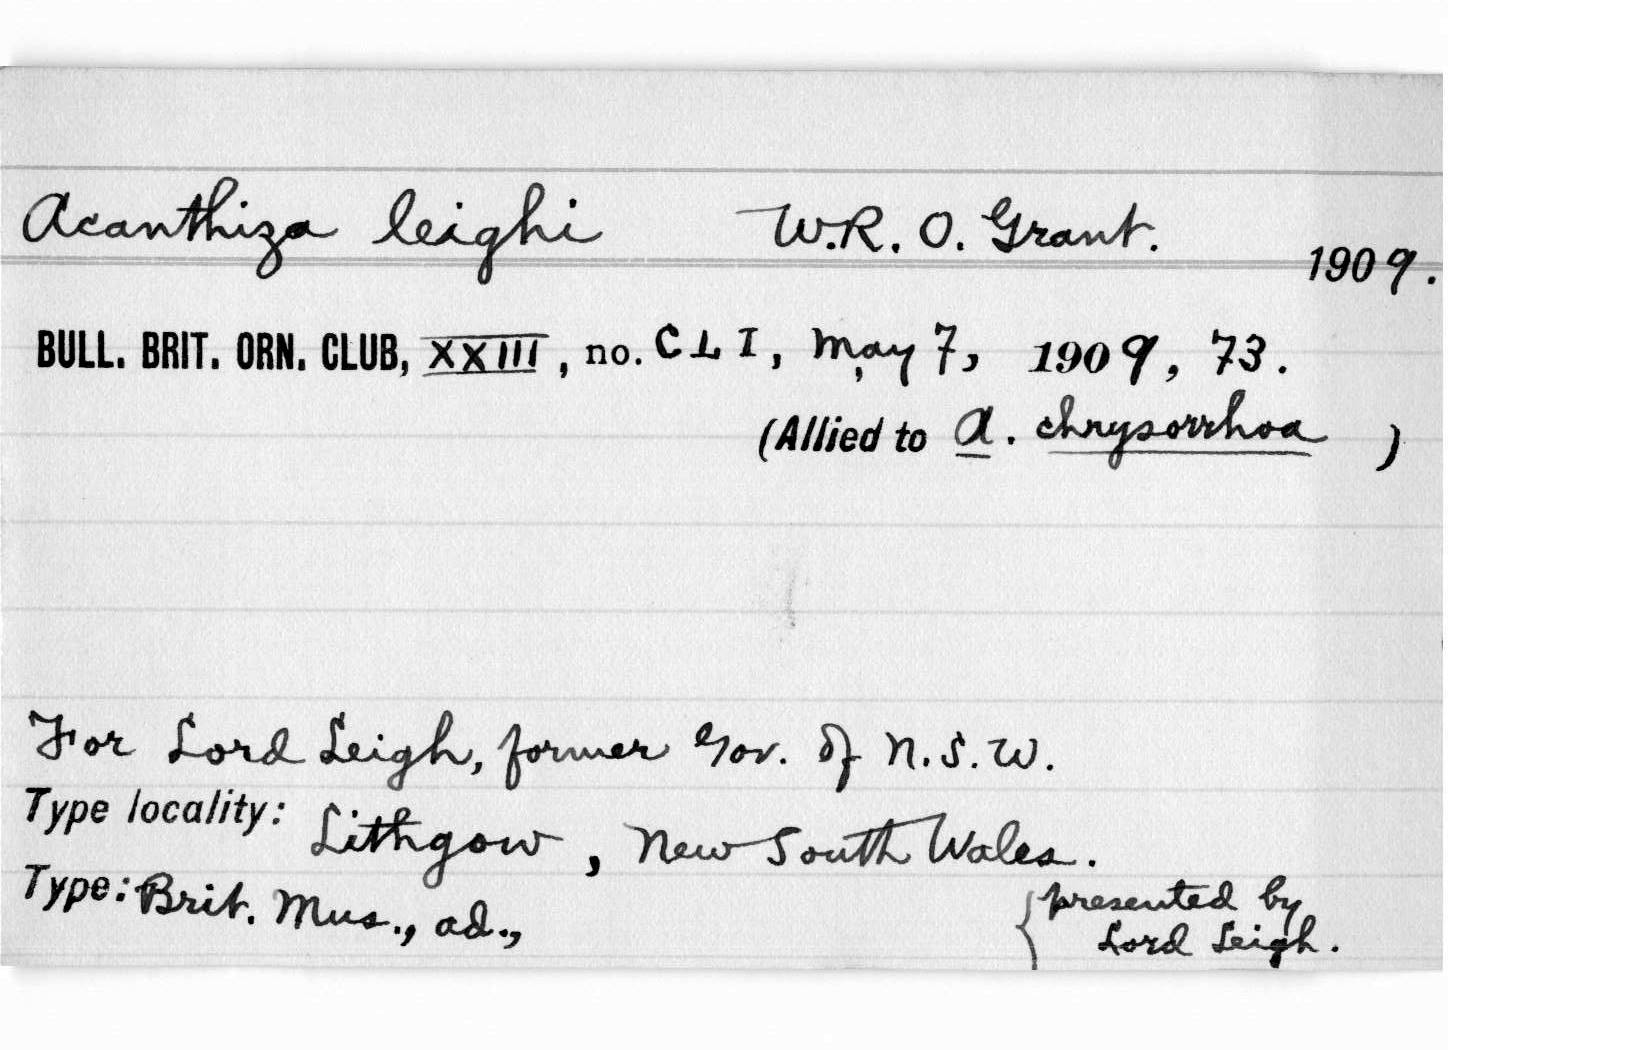 Acanthiza leighi W.R. O. Grant. 1909.
BULL. BRIT. ORN. CLUB, XXIII, no. CLI, May 7, 1909, 73.
(Allied to A. chrysorrhoa )
For Lord Leigh, former Gov. of N.S.W.
Type locality: Lithgow, New South Wales.
Type: Brit. Mus., ad., { presented by
Lord Leigh.